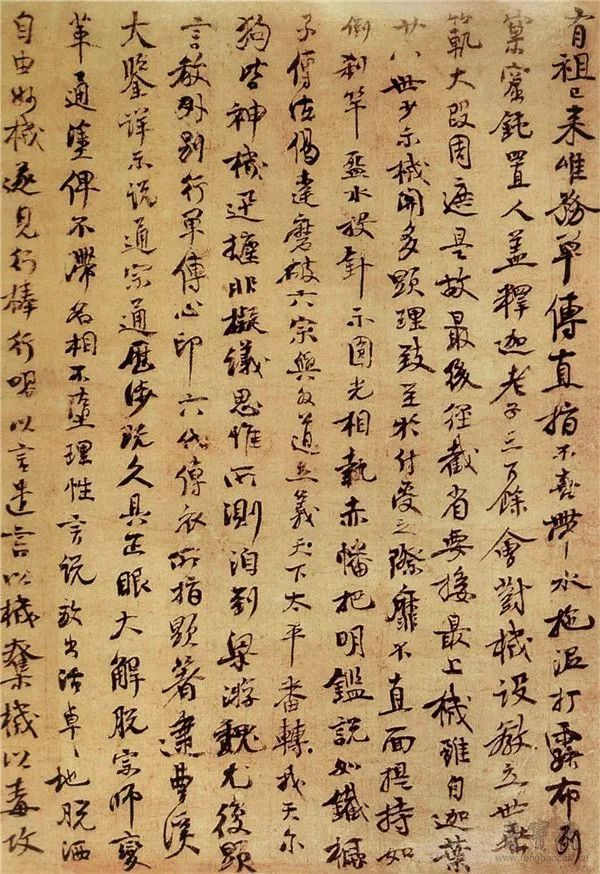 有祖已來唯務單傳直指不喜帶水拖泥打露布列
窠窟鈍置人蓋釋迦老子三百餘會對機設教立世垂
範大段周遮是故最後徑截省要接最上機雖自迦葉
廿八世少示機關多顯理致至於付受之際靡不直面提持如
倒刹竿盋水投針示圓光相執赤幡把明鑑說如鐵橛
子傳法偈達磨破六宗與外道立義天下太平番轉我天尔
狗皆神機迅捷非擬議思惟所測洎到梁游魏尤復顯
言教外別行單傳心印六代傳衣所指顯著逮曹溪
大鑒詳示說通宗通歷涉既久具正眼大解脫宗師變
革通塗俾不滯名相不墮理性言說放出活卓〻地脫洒
自由妙機遂見行棒行喝以言遣言以機奪機以毒攻